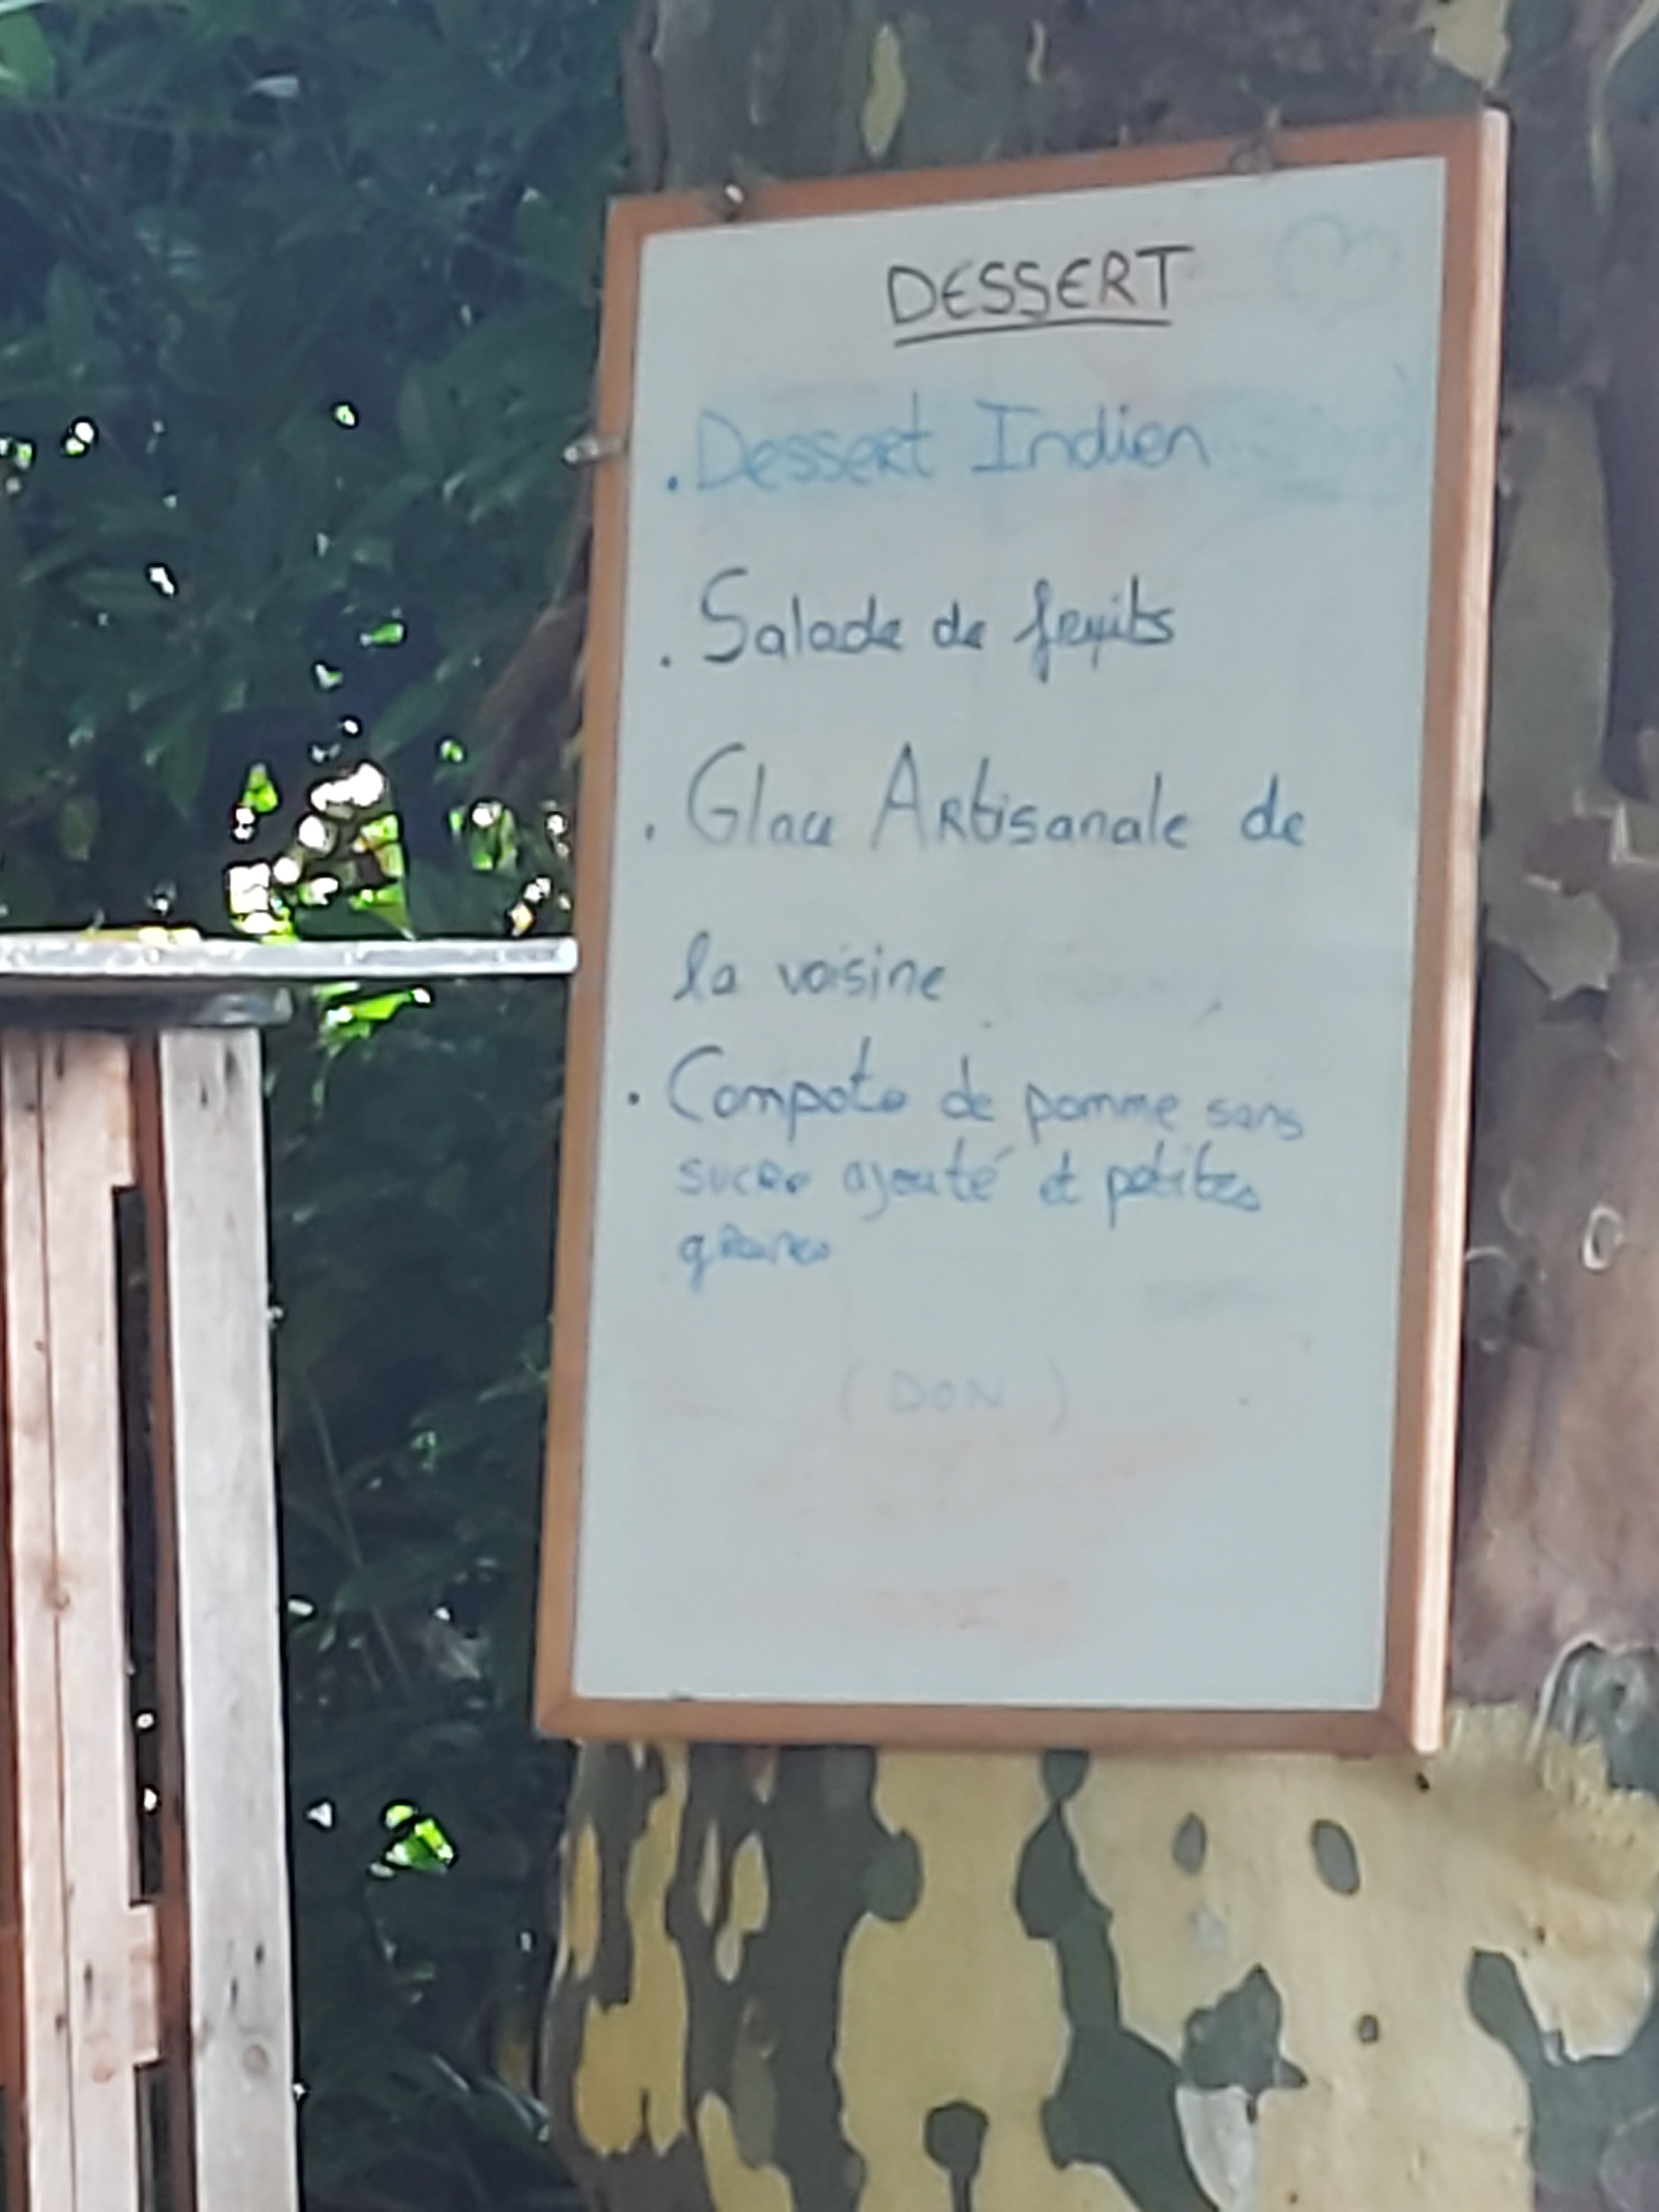 DESSERT
. Dessert Indien
. Salade de fruits
. Glace Artisanale de
la voisine
. Compote de pomme sans
sucre ajouté et petites
graines
( DON )